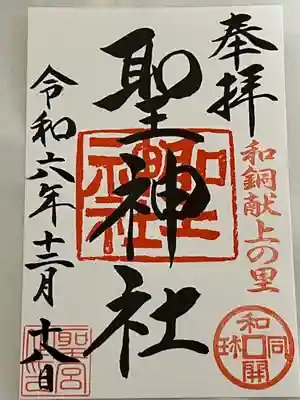 奉拝
和銅献上の里
聖神社
令和六年十二月十八日
聖神社
和同開珎